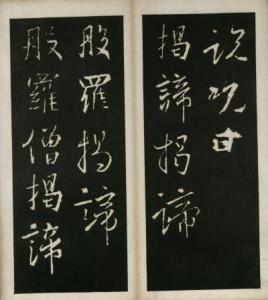 說呪曰
揭諦揭諦
般羅揭諦
般羅僧揭諦